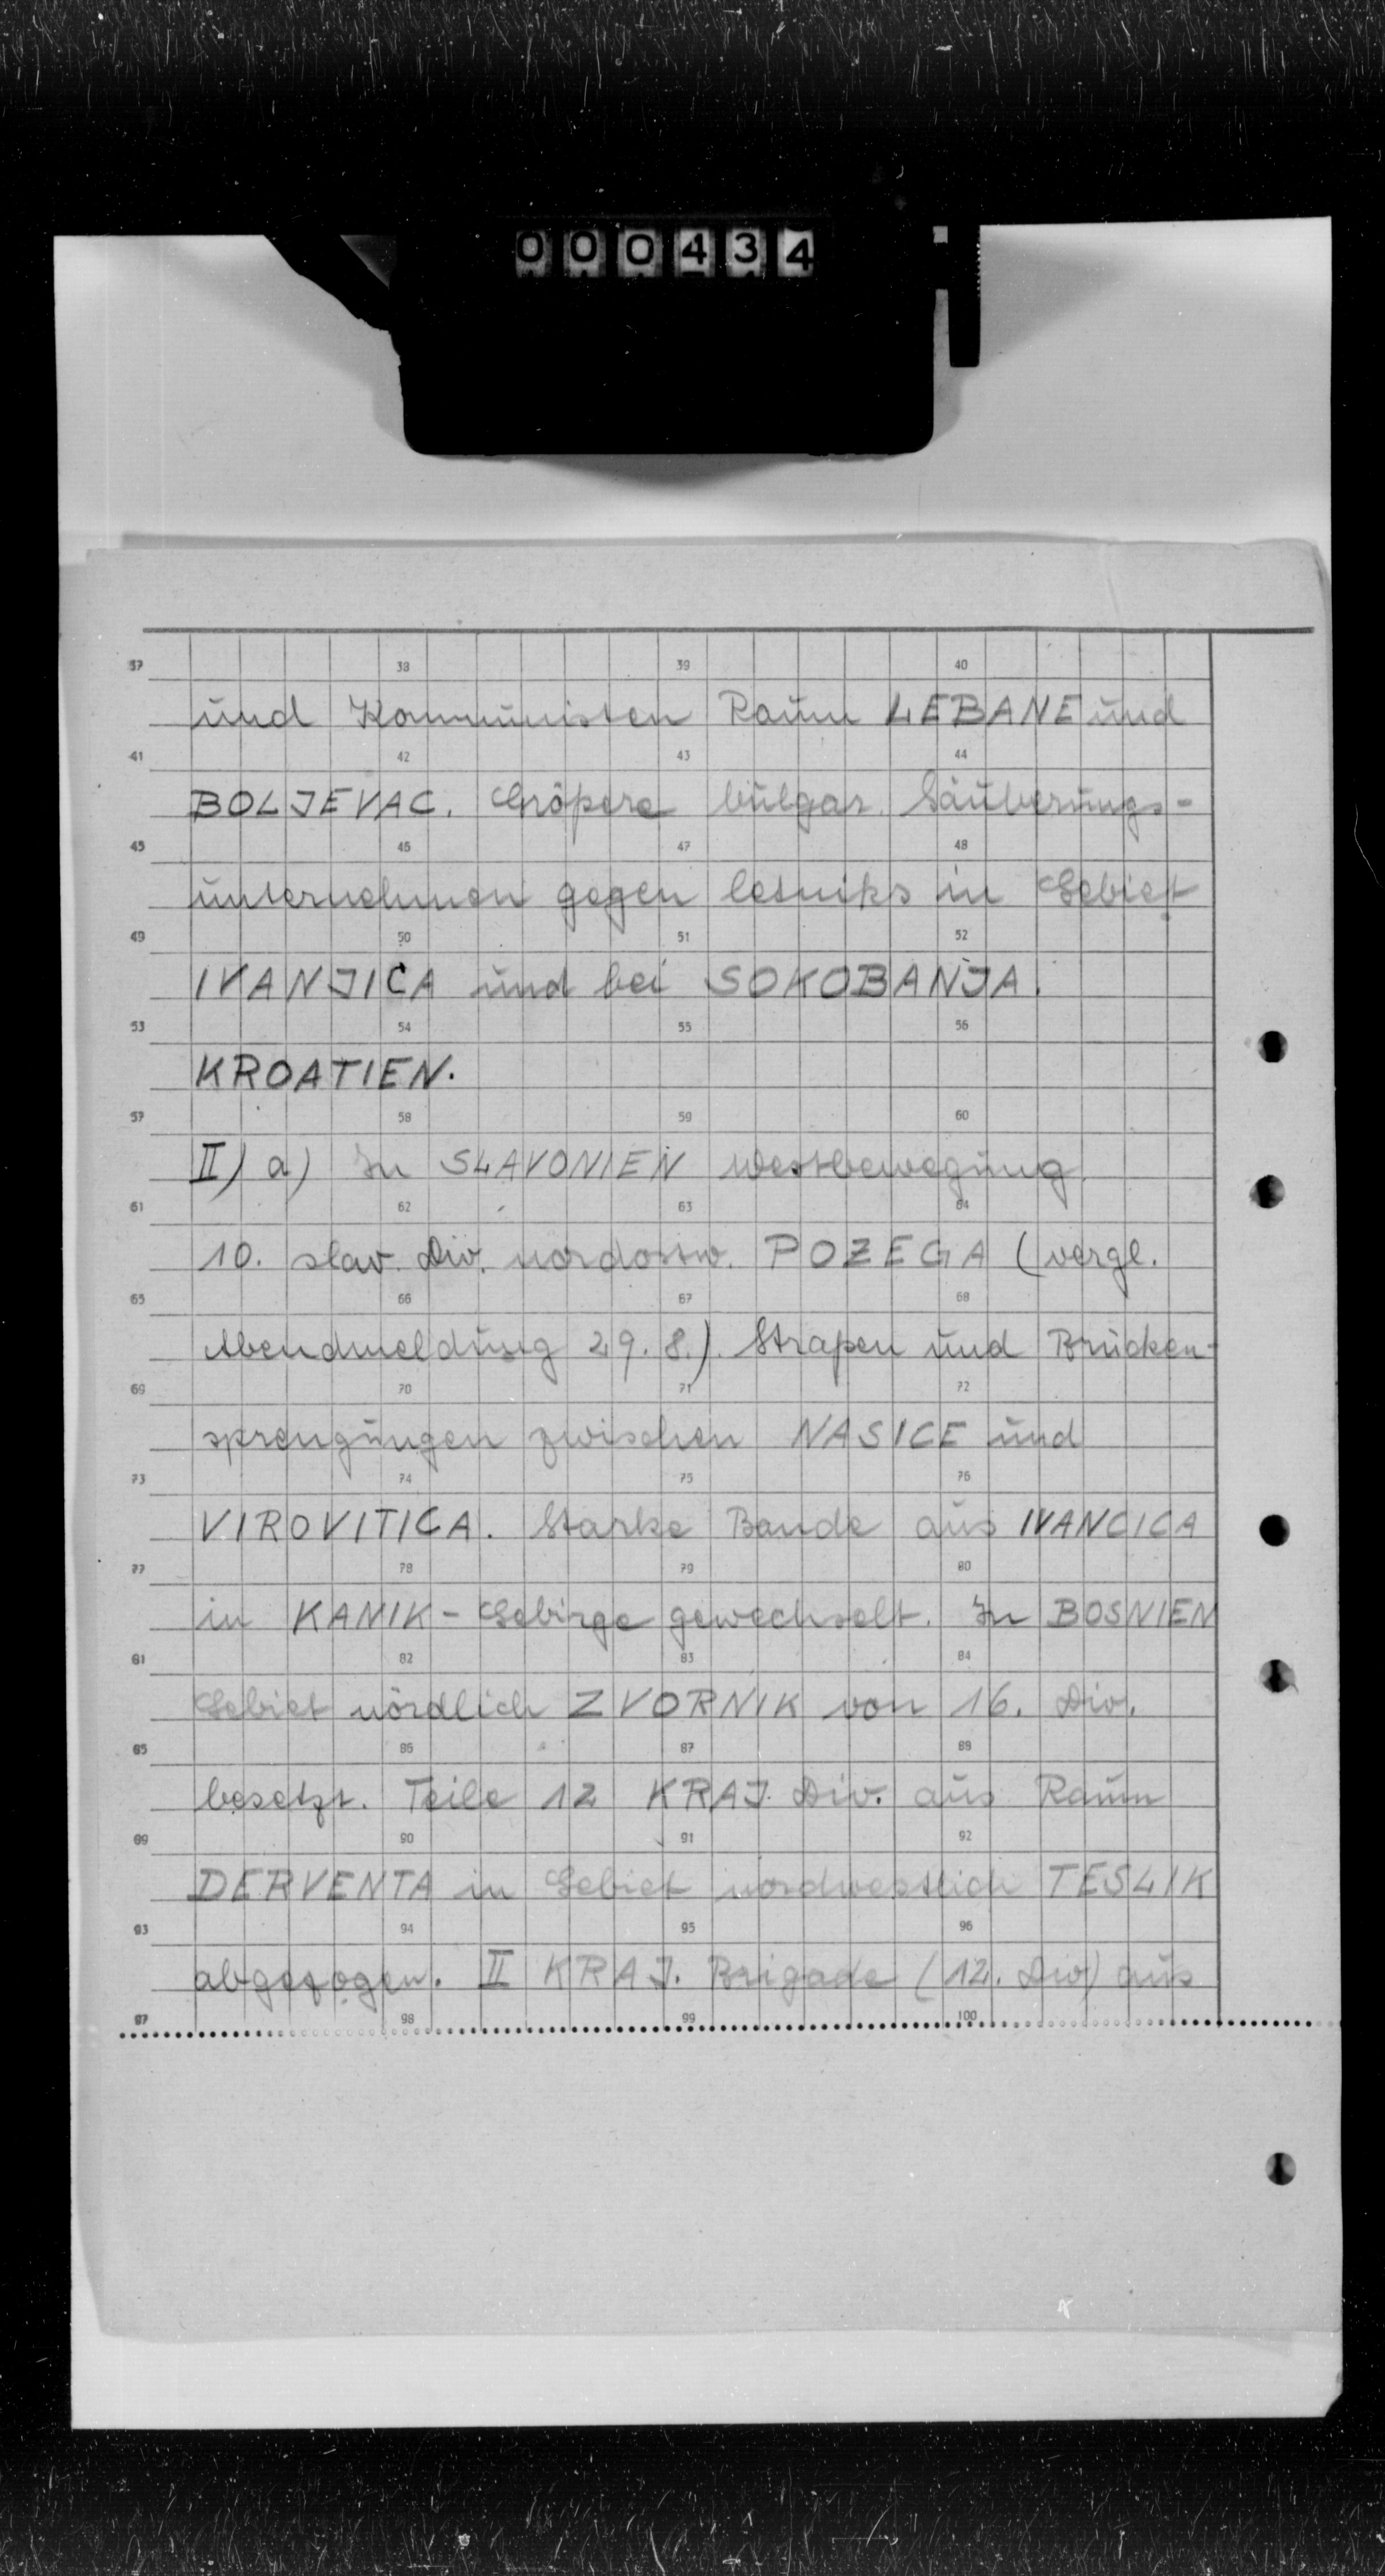 000434
37 38 39 40
und Kommunisten Raum LEBANE und
41 42 43 44
BOLJEVAC. Größere bulgar. Säuberungs-
45 46 47 48
unternehmen gegen Cetniks in Gebiet
49 50 51 52
IVANJICA und bei SOKOBANJA.
53 54 55 56
KROATIEN.
57 58 59 60
II) a) In SLAVONIEN Westbewegung
61 62 63 64
10. slav. Div. nordostw. POZEGA (vergl.
65 66 67 68
Abendmeldung 29.8.). Straßen und Brücken-
69 70 71 72
sprengungen zwischen NASICE und
73 74 75 76
VIROVITICA. Starke Bande aus IVANCICA
77 78 79 80
in KANIK-Gebirge gewechselt. In BOSNIEN
81 82 83 84
Gebiet nördlich ZVORNIK von 16. Div.
85 86 87 88
besetzt. Teile 12 KRAJ. Div. aus Raum
89 90 91 92
DERVENTA in Gebiet nordwestlich TESLIK
93 94 95 96
abgezogen. II KRAJ. Brigade (12. Div) aus
97 98 99 100